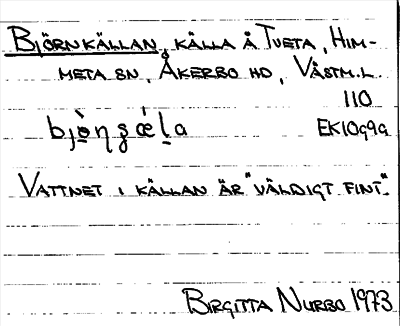 BJÖRNKÄLLAN, KÄLLA Å TUETA, HIM-
META SN, ÅKERBO HD, VÄSTM.L
110
EK10g9a
VATTNET I KÄLLAN ÄR "VÄLDIGT FINT".
BIRGITTA NURBO 1973